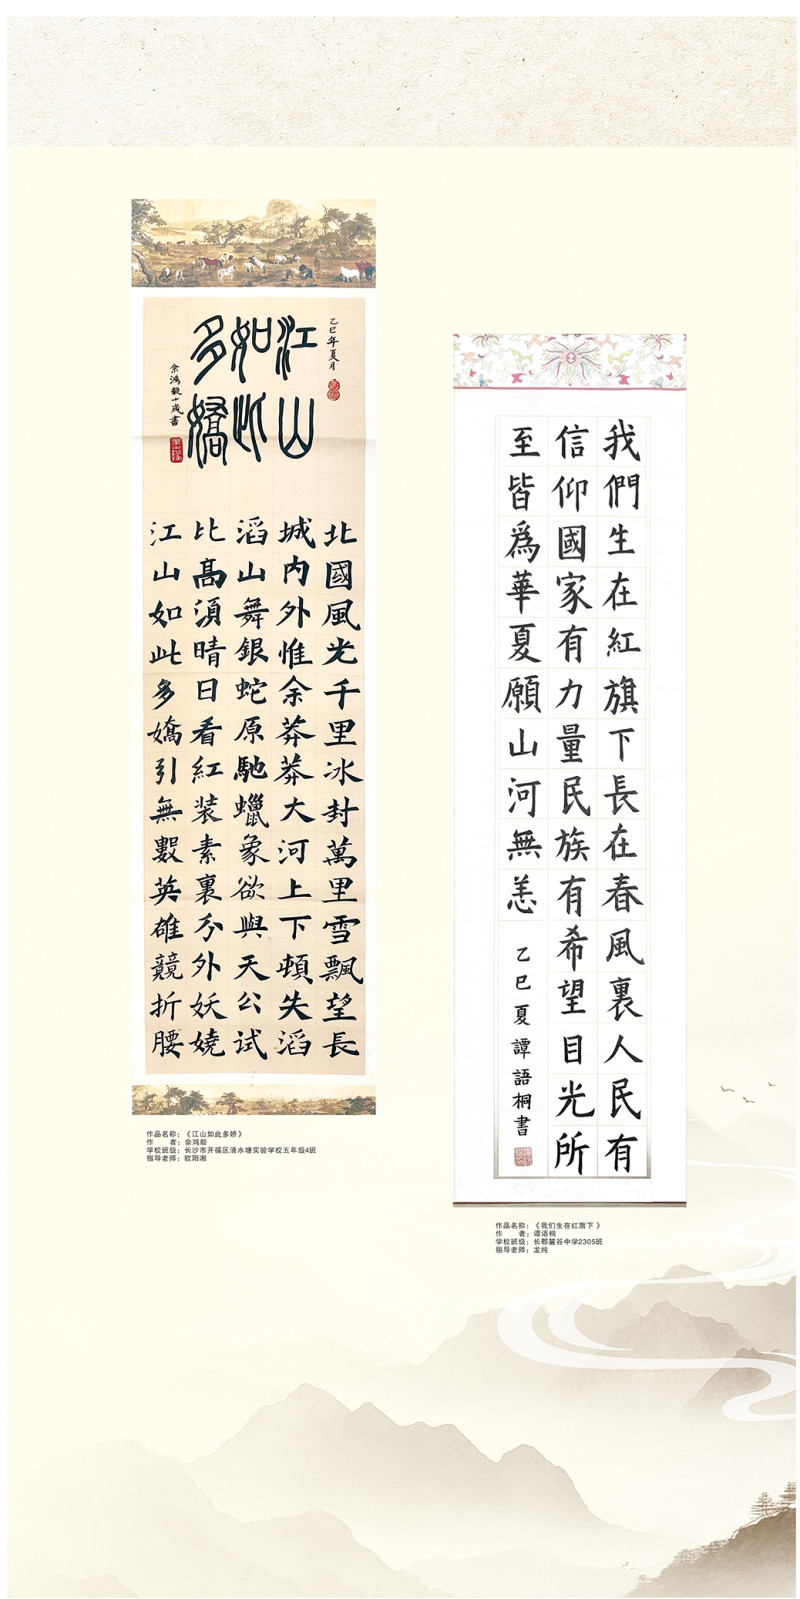 乙巳年夏月
江山
如此
多嬌
余鴻毅十歲書
北國風光千里冰封萬里雪飄望長
城内外惟余莽莽大河上下頓失滔
滔山舞銀蛇原馳蠟象欲與天公試
比高須晴日看紅装素裹分外妖嬈
江山如此多嬌引無數英雄競折腰
作品名称：《江山如此多娇》
作 者：佘鸿毅
学校班级：长沙市开福区清水塘实验学校五年级4班
指导老师：欧阳湘
我們生在紅旗下長在春風裏人民有
信仰國家有力量民族有希望目光所
至皆爲華夏願山河無恙
乙巳夏譚語桐書
作品名称：《我们生在红旗下 》
作 者：谭语桐
学校班级：长郡麓谷中学2305班
指导老师：龙纯